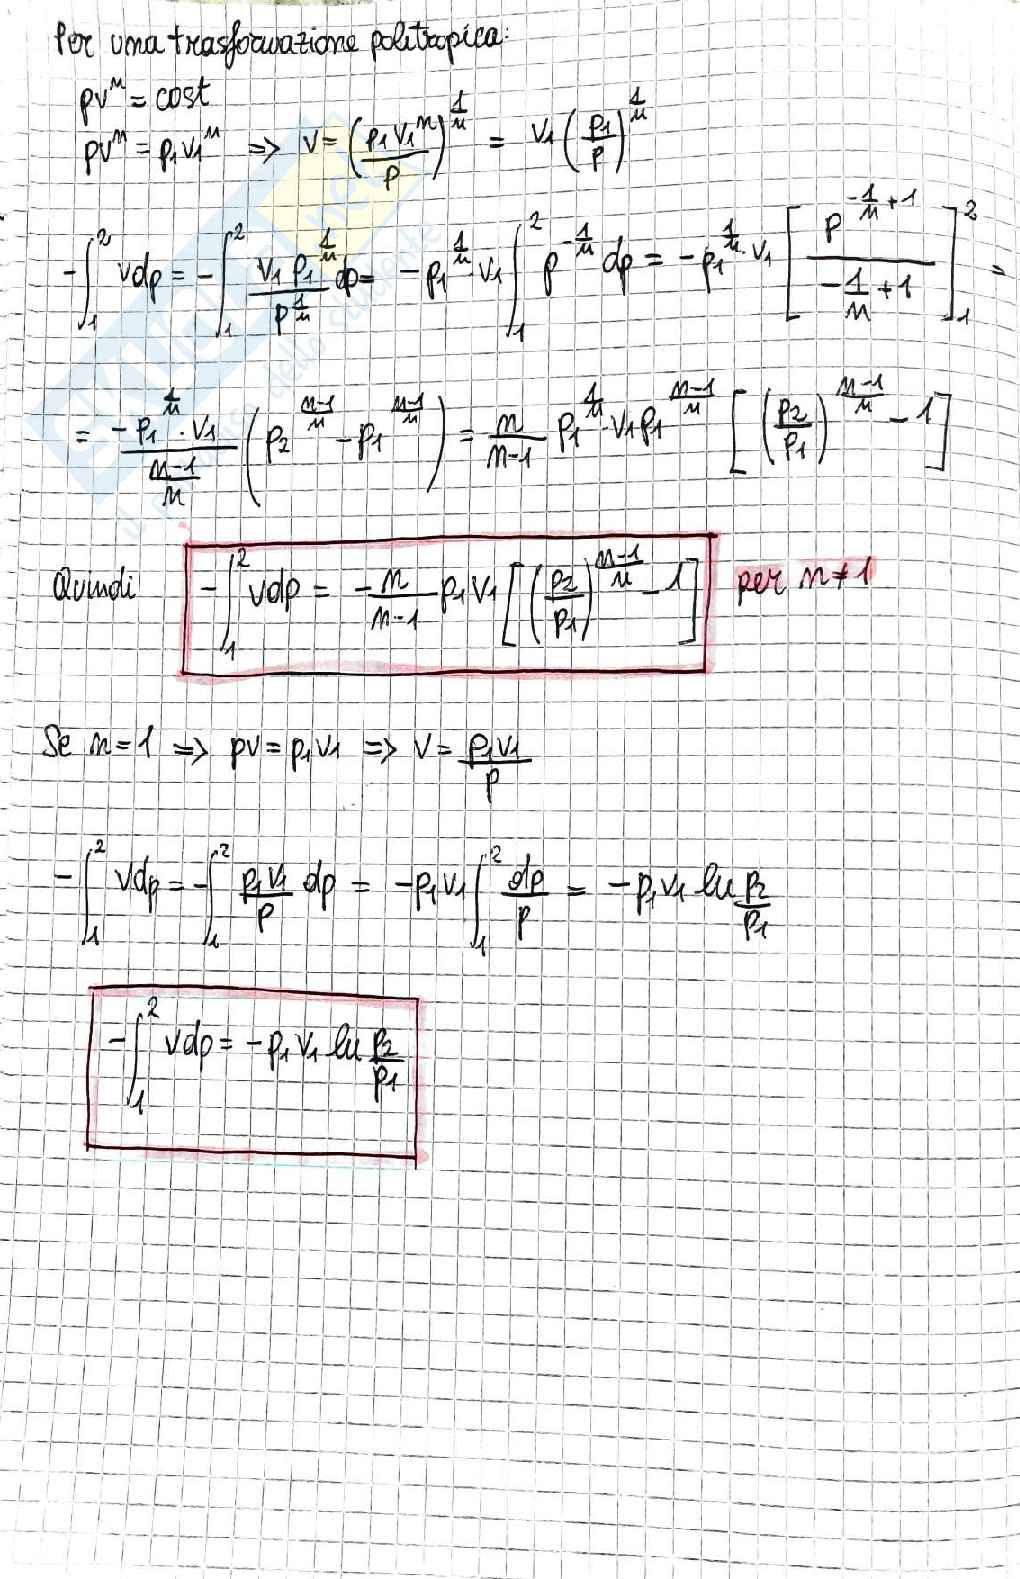 Per una trasformazione politropica:
pvⁿ = cost
pvⁿ = p₁v₁ⁿ => v = (p₁v₁ⁿ/p)^(1/n) = v₁(p₁/p)^(1/n)
-∫₁² vdp = -∫₁² (v₁p₁^(1/n)/p^(1/n)) dp = -p₁^(1/n)·v₁ ∫₁² p^(-1/n) dp = -p₁^(1/n)·v₁ [p^(-1/n+1)/(-1/n+1)]₁² =
= (-p₁^(1/n)·v₁)/((n-1)/n) (p₂^((n-1)/n) - p₁^((n-1)/n)) = - n/(n-1) p₁^(1/n)·v₁p₁^((n-1)/n) [(p₂/p₁)^((n-1)/n) - 1]
Quindi -∫₁² vdp = -n/(n-1) p₁v₁ [(p₂/p₁)^((n-1)/n) - 1] per n≠1
Se n=1 => pv = p₁v₁ => v = p₁v₁/p
-∫₁² vdp = -∫₁² (p₁v₁/p) dp = -p₁v₁ ∫₁² dp/p = -p₁v₁ ln p₂/p₁
-∫₁² vdp = -p₁v₁ ln p₂/p₁